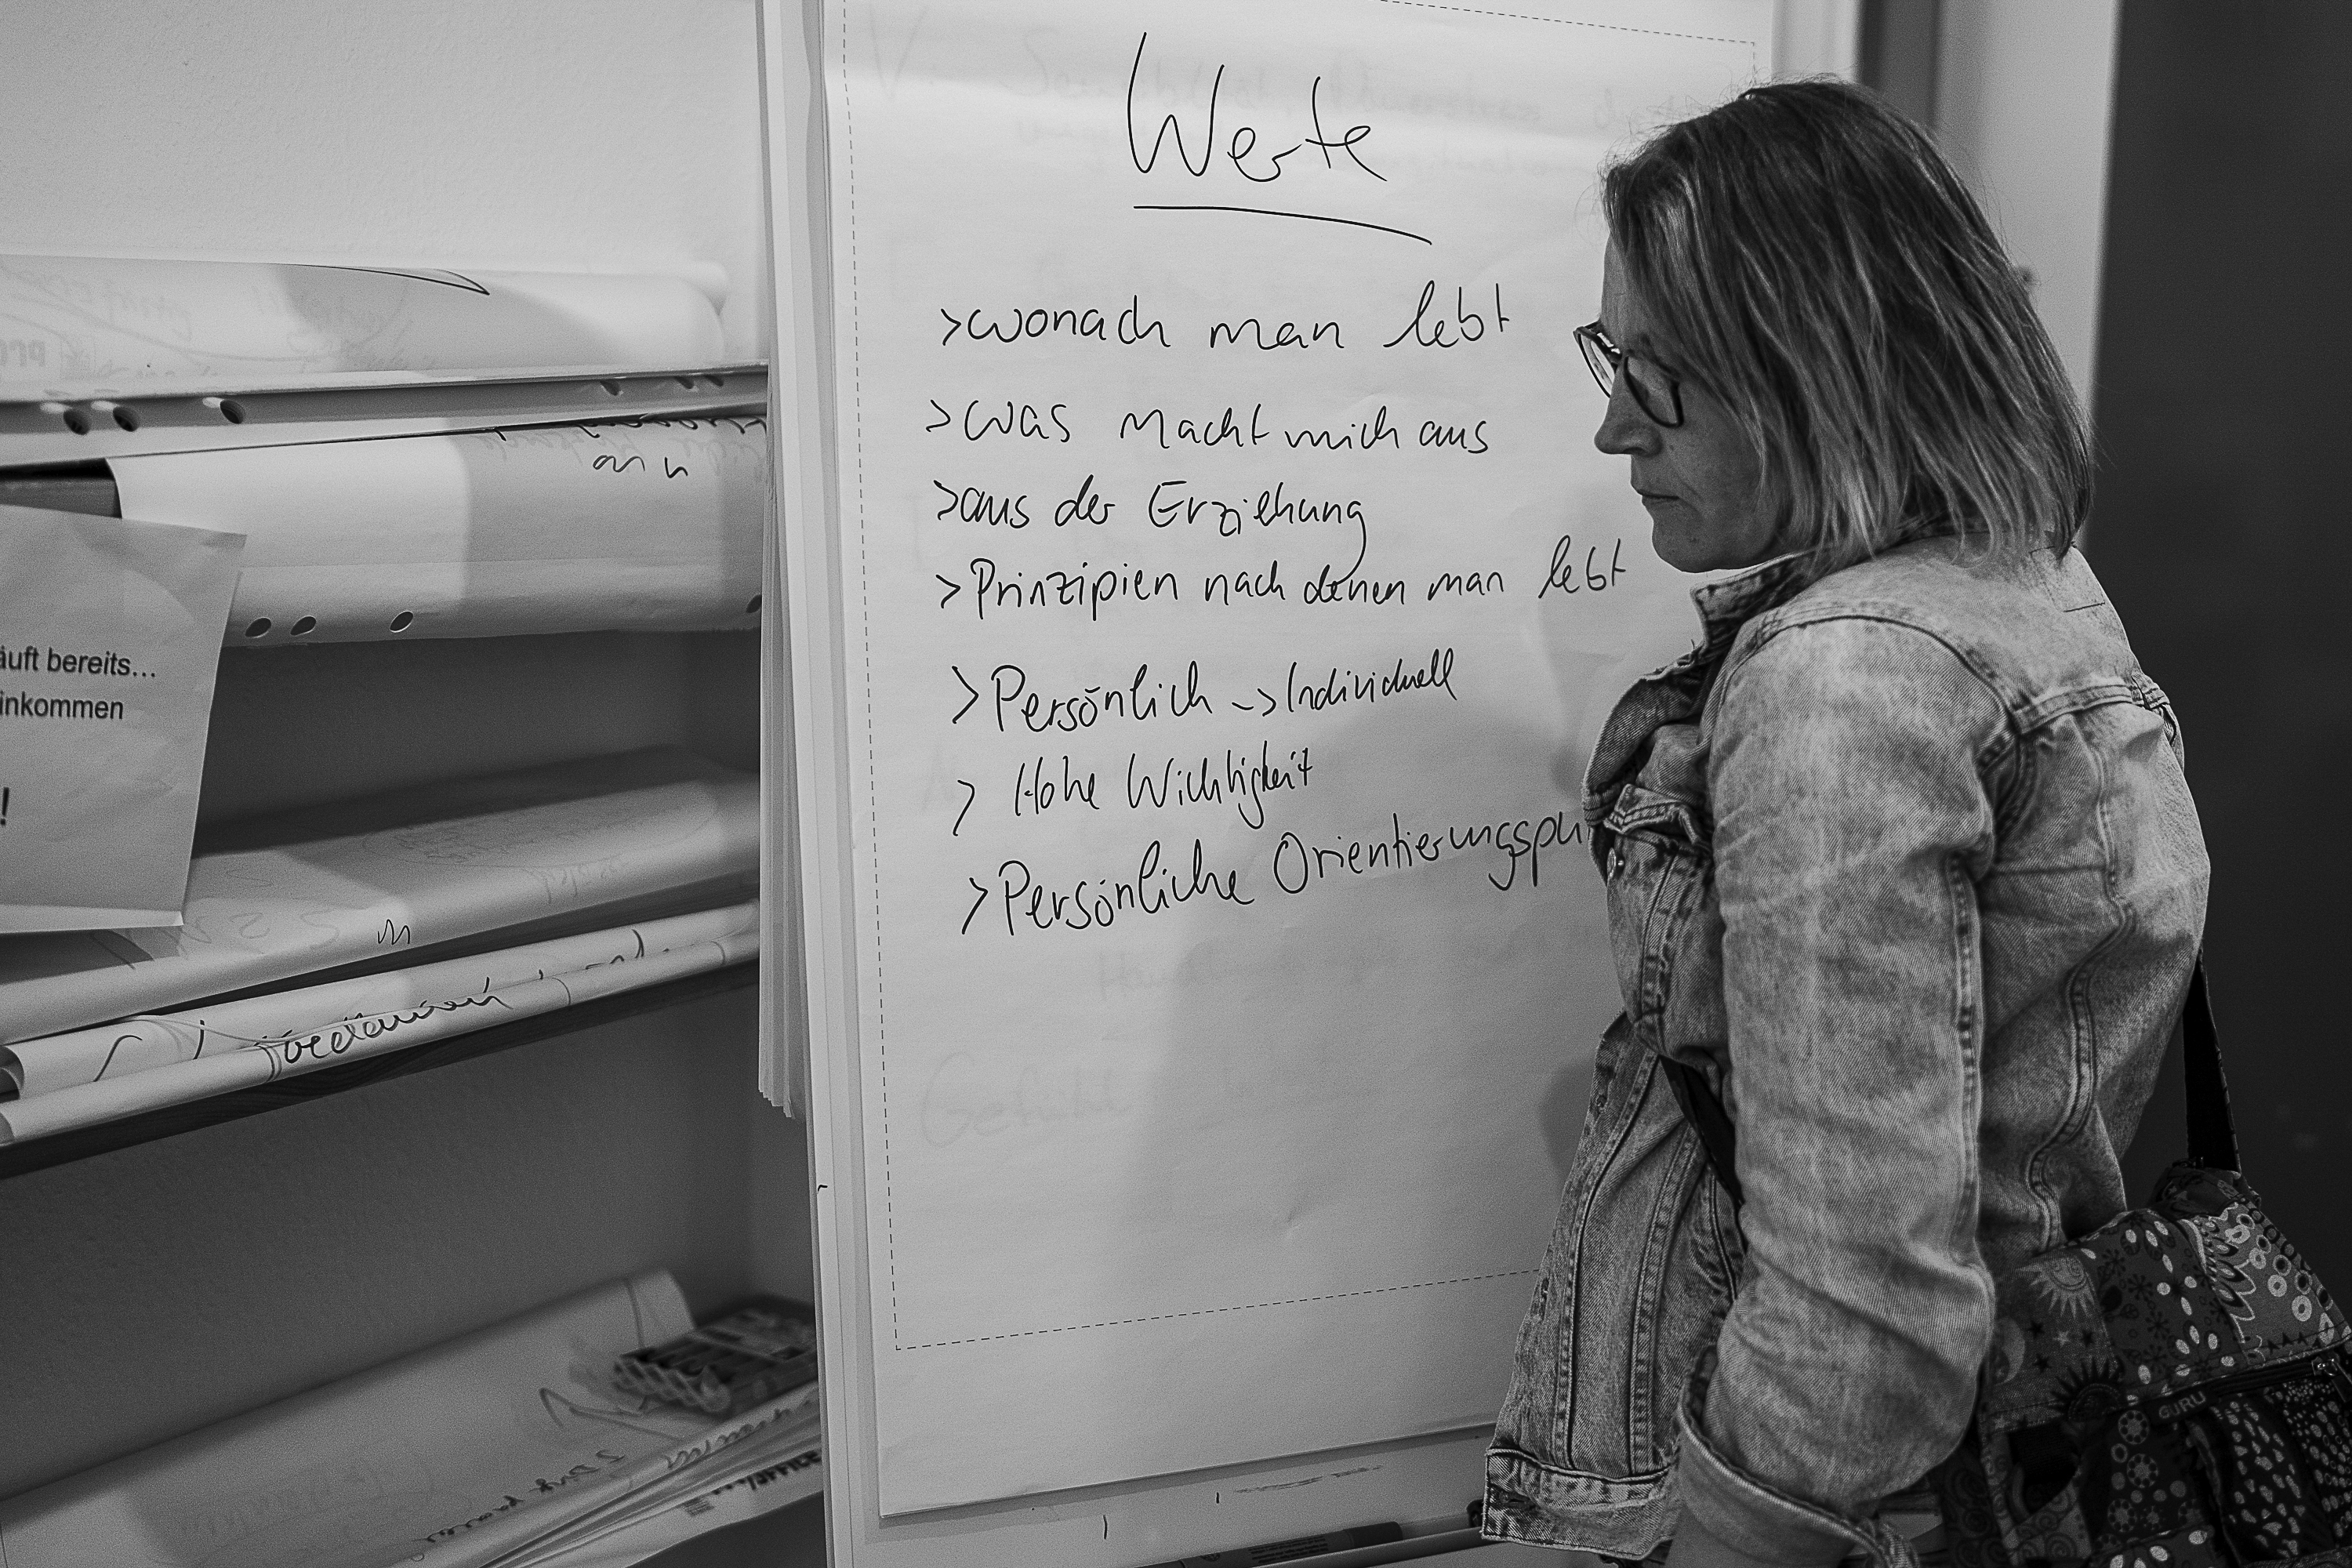 Werte
>wonach man lebt
>was macht mich aus
>aus der Erziehung
>Prinzipien nach denen man lebt
>Persönlich -> Individuell
> Hohe Wichtigkeit
>Persönliche Orientierungspu
äuft bereits...
inkommen
!
Gefühl
GURU